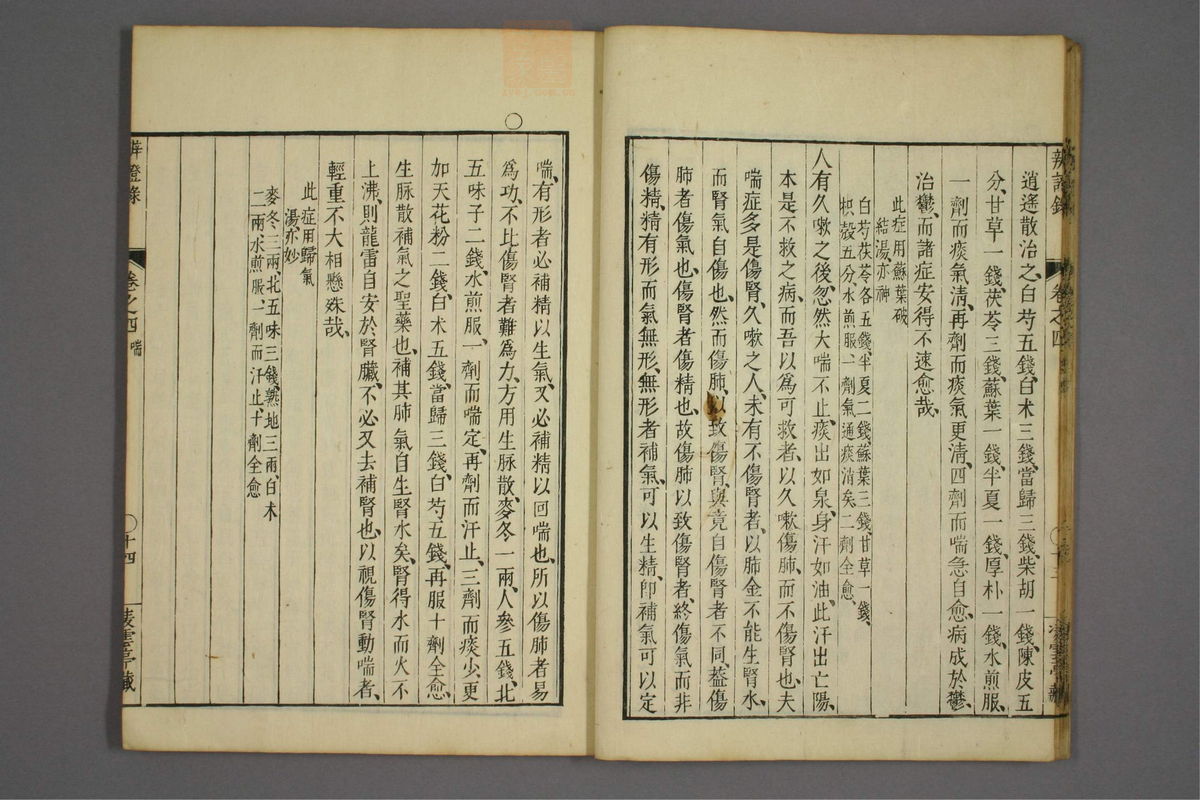 辨證錄 卷之四
逍遙散治之、白芍五錢、白朮三錢、當歸三錢、柴胡一錢、陳皮五
分、甘草一錢、茯苓三錢、蘇葉一錢、半夏一錢、厚朴一錢、水煎服、
一劑而痰氣清、再劑而痰氣更清、四劑而喘急自愈、病成於鬱、
治鬱、而諸症安得不速愈哉、
此症用蘇葉破
結湯、亦神
白芍茯苓各五錢、半夏二錢、蘇葉三錢、甘草一錢、
枳殼五分、水煎服、一劑氣通痰消矣、二劑全愈、
人有久嗽之後、忽然大喘不止、痰出如泉、身汗如油、此汗出亡陽、
本是不救之病、而吾以為可救者、以久嗽傷肺、而不傷腎也、夫
喘症多是傷腎、久嗽之人、未有不傷腎者、以肺金不能生腎水、
而腎氣自傷也、然而傷肺、以致傷腎、與竟自傷腎者不同、蓋傷
肺者傷氣也、傷腎者傷精也、故傷肺以致傷腎者、終傷氣而非
傷精、精有形而氣無形、無形者補氣、可以生精、即補氣可以定
喘、有形者必補精以生氣、又必補精以回喘也、所以傷肺者易
為功、不比傷腎者難為力、方用生脉散、麥冬一兩、人參五錢、北
五味子二錢、水煎服、一劑而喘定、再劑而汗止、三劑而痰少、更
加天花粉二錢、白朮五錢、當歸三錢、白芍五錢、再服十劑全愈、
生脉散補氣之聖藥也、補其肺氣自生腎水矣、腎得水而火不
上沸、則龍雷自安於腎臟、不必又去補腎也、以視傷腎動喘者、
輕重不大相懸殊哉、
此症用歸氣
湯、亦妙
麥冬三兩、北五味三錢、熟地三兩、白朮
二兩、水煎服、一劑而汗止、十劑全愈
辨證錄 卷之四 喘 十四 凌雲亭藏